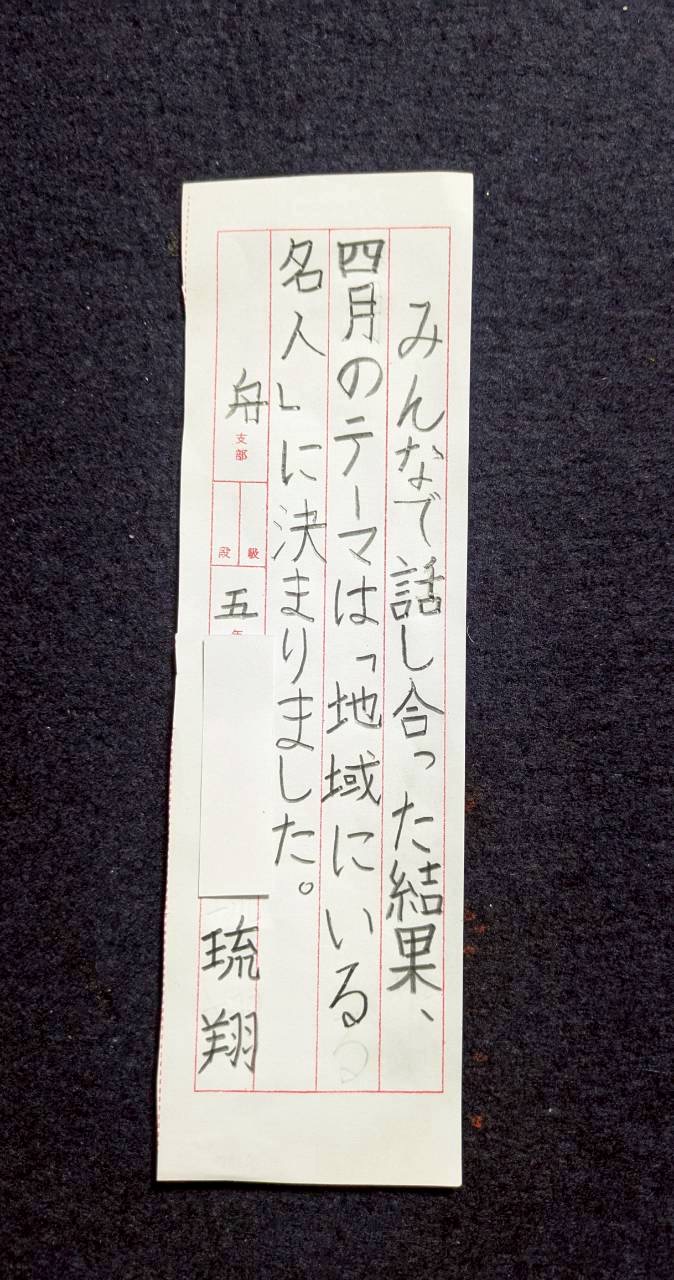 みんなで話し合った結果、
四月のテーマは「地域にいる
名人」に決まりました。
舟支部
段 級
五年
琉翔